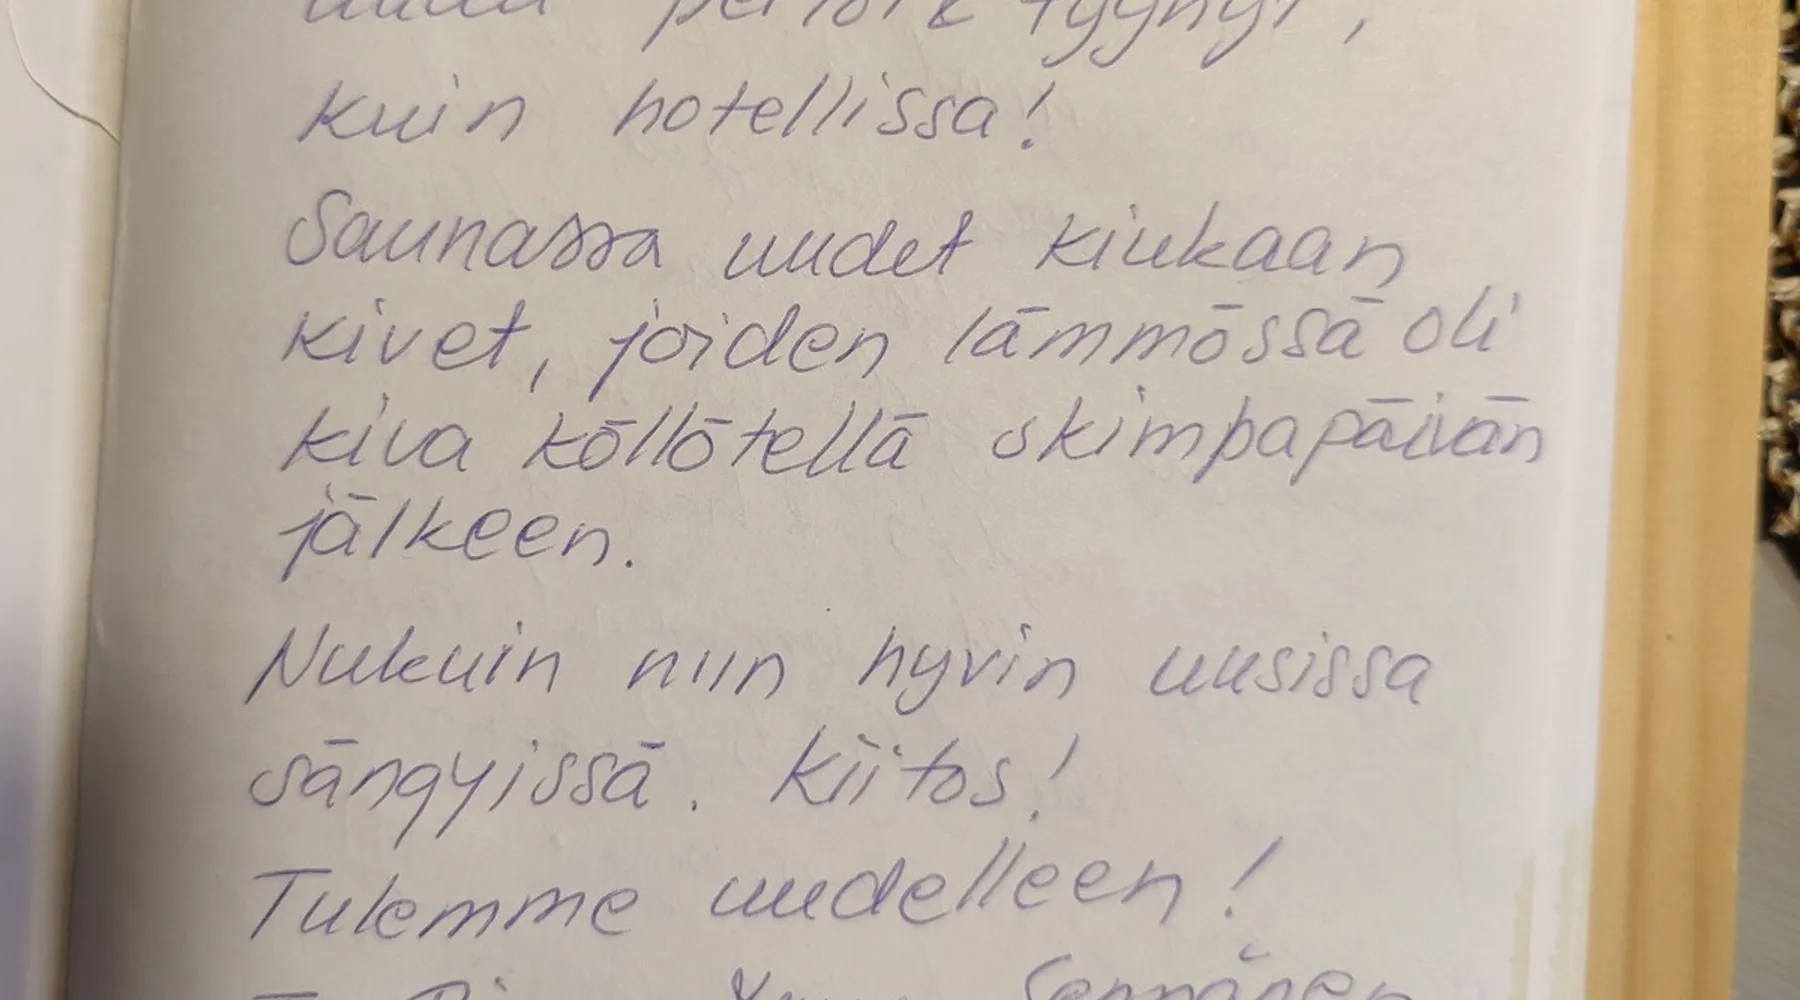 tyynyt,
kuin hotellissa!
Saunassa uudet kiukaan
kivet, joiden lämmössä oli
kiva köllötellä skimbapäivän
jälkeen.
Nukuin niin hyvin uusissa
sängyissä. Kiitos!
Tulemme uudelleen!